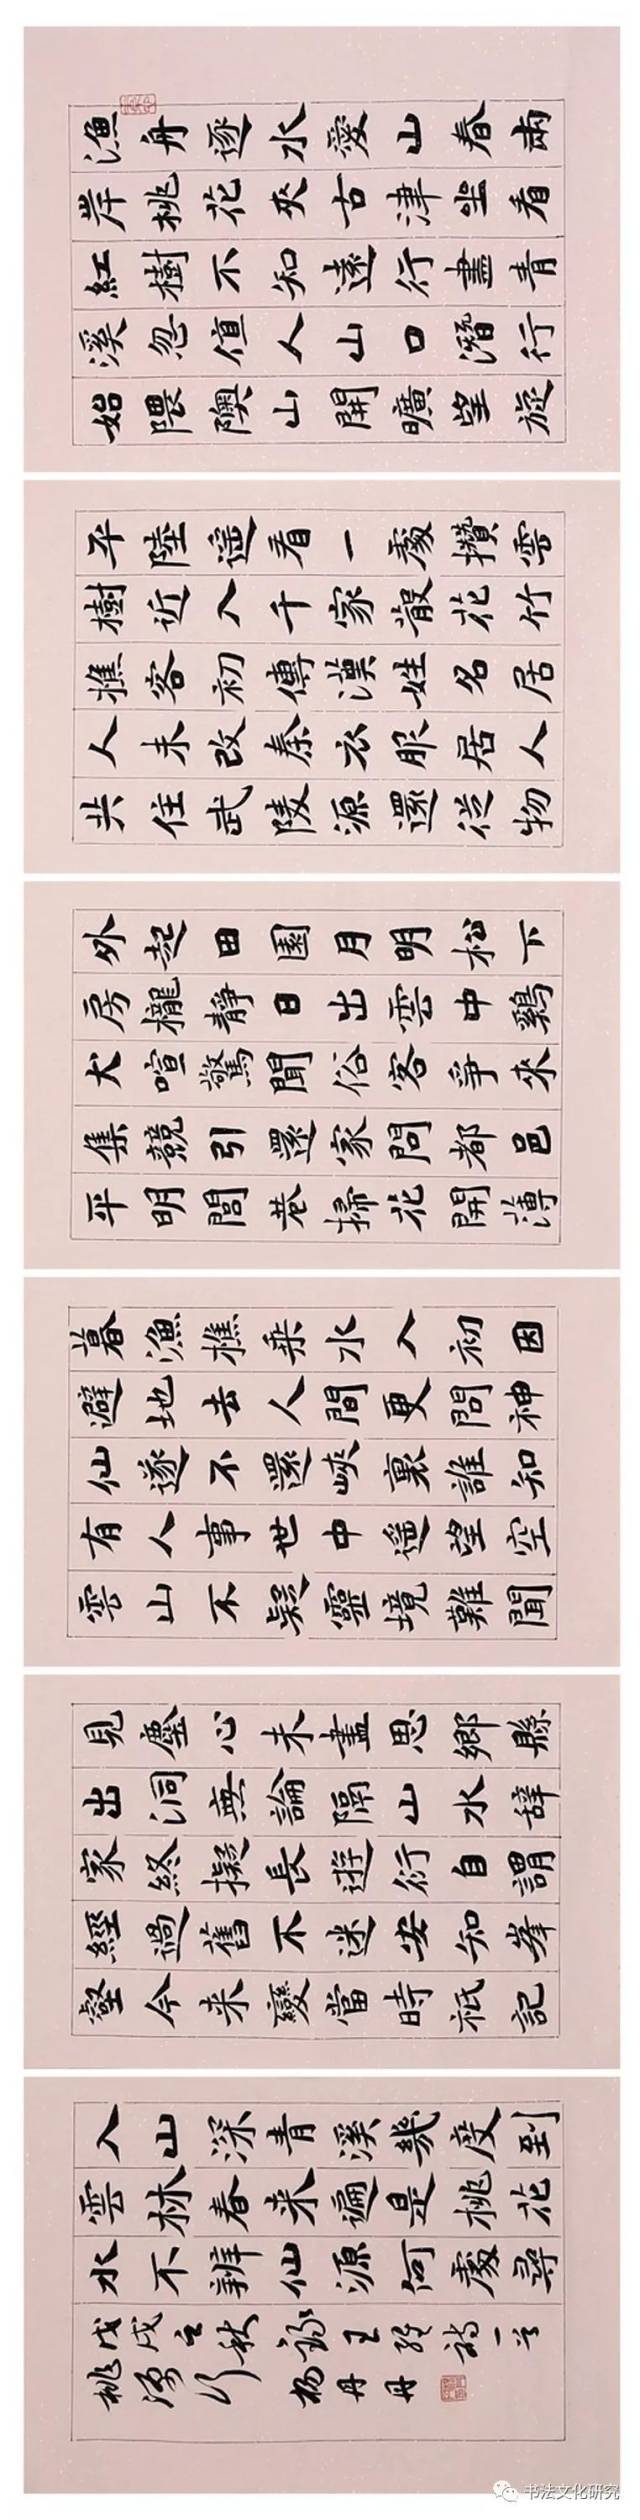 漁舟逐水愛山春兩
岸桃花夾古津坐看
紅樹不知遠行盡青
溪忽值人山口潛行
始隈隩山開曠望旋
平陸遥看一處攢雲
樹近入千家散花竹
樵客初傳漢姓名居
人未改秦衣服居人
共住武陵源還從物
外起田園月明松下
房櫳靜日出雲中鷄
犬喧驚聞俗客爭來
集競引還家問都邑
平明閭巷掃花開薄
暮漁樵乘水入初因
避地去人間更問神
仙遂不還峽裏誰知
有人事世中遥望空
雲山不疑靈境難聞
見塵心未盡思鄉縣
出洞無論隔山水辞
家終擬長遊衍自謂
經過舊不迷安知峯
壑今来變當時祇記
入山深青溪幾度到
雲林春来遍是桃花
水不辨仙源何處尋
戊戌之秋錄王維詩一首
桃源行 楊丹丹
书法文化研究